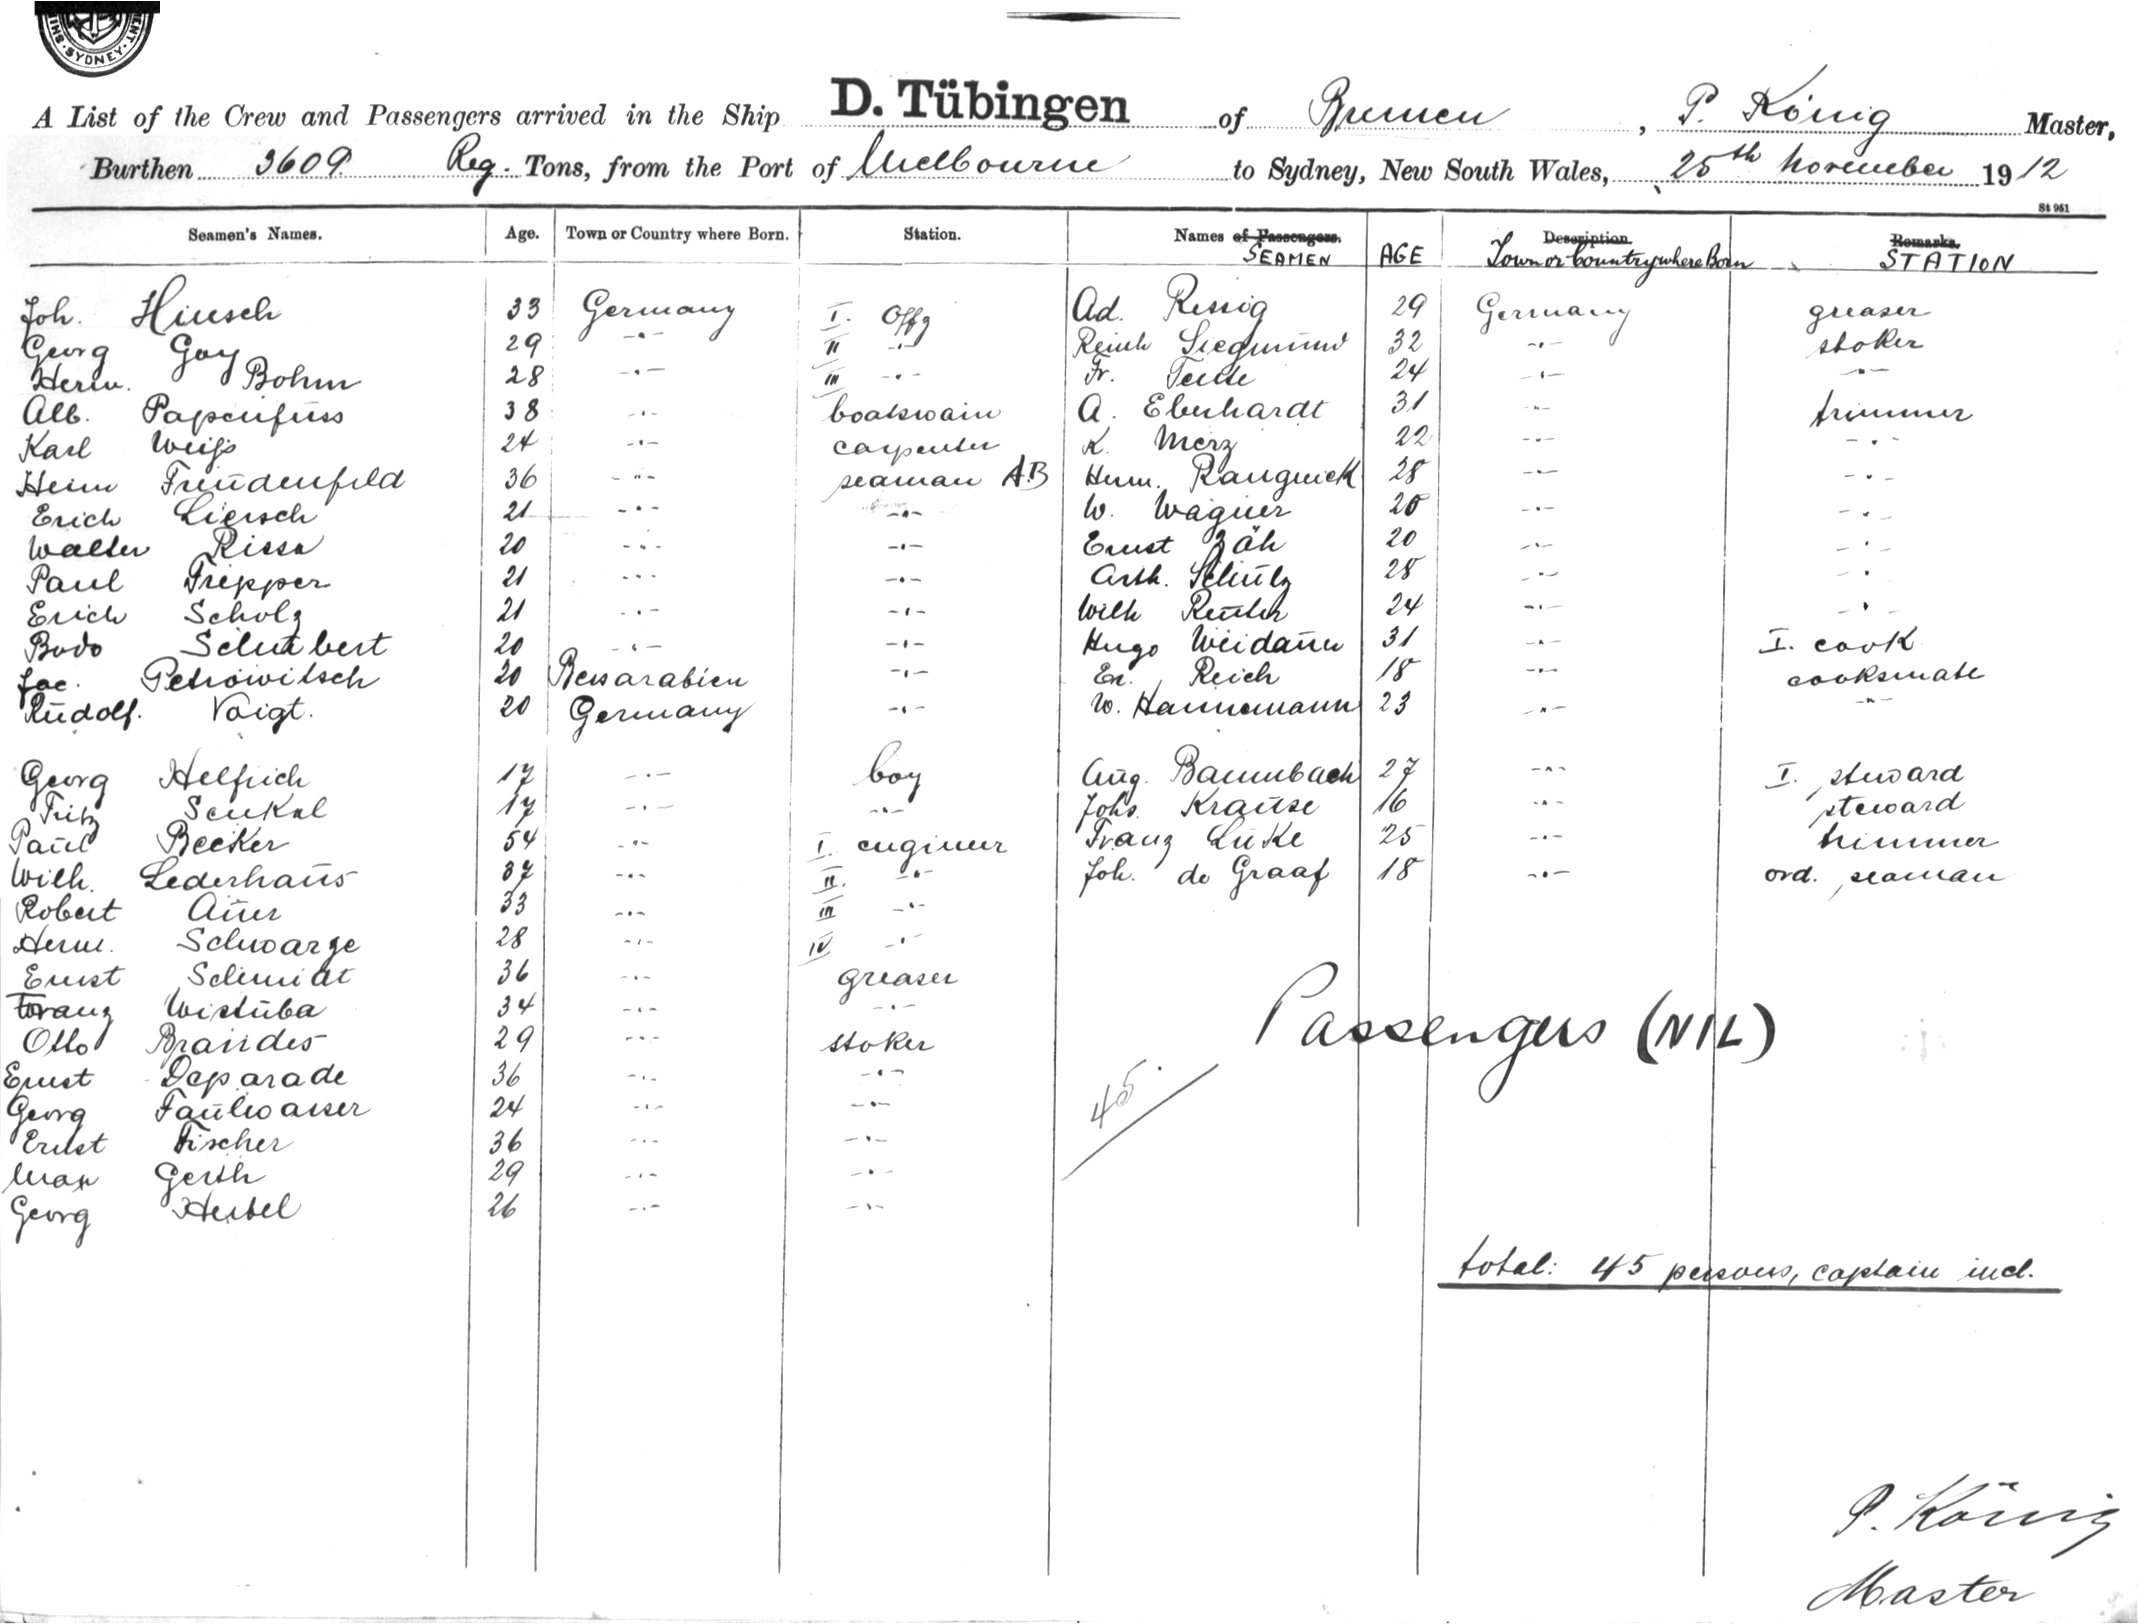 SYDNEY
A List of the Crew and Passengers arrived in the Ship D. Tübingen of Bremen, P. König Master,
Burthen 3609 Reg. Tons, from the Port of Melbourne to Sydney, New South Wales, 25th November 1912
St 951
Seamen's Names. Age. Town or Country where Born. Station. Names of Passengers. SEAMEN AGE Description. Town or Country where Born Remarks. STATION
Joh. Hinsch 33 Germany I. Offz Ad. Ressig 29 Germany greaser
Georg Gay 29 -"- II -"- Reinh Siegmund 32 -"- stoker
Herm. Bohm 28 -"- III -"- Fr. 24 -"- -"-
Alb. Papenfuss 38 -"- boatswain A. Eberhardt 31 -"- trimmer
Karl Weiß 24 -"- carpenter K. Merz 22 -"- -"-
Heinr Freudenfeld 36 -"- seaman A.B Herm. Ranguick 28 -"- -"-
Erich Liersch 21 -"- -"- W. Wagner 20 -"- -"-
Walter 20 -"- -"- Ernst Zäh 20 -"- -"-
Paul Tripper 21 -"- -"- Arth. Schulz 28 -"- -"-
Erich Scholz 21 -"- -"- Wilh Reuter 24 -"- -"-
Bodo Schubert 20 -"- -"- Hugo Weidauer 31 -"- I. cook
Jac. Petrowitsch 20 Bessarabien -"- Er. Reich 18 -"- cooksmate
Rudolf. Voigt. 20 Germany -"- W. Hannemann 23 -"- -"-
Georg Helfrich 17 -"- boy Aug. Baumbach 27 -"- I. steward
Fritz Senkal 17 -"- -"- Johs. Krause 16 -"- steward
Paul Becker 54 -"- I. engineer Franz Luke 25 -"- trimmer
Wilh. Lederhaus 37 -"- II. -"- Joh. de Graaf 18 -"- ord. seaman
Robert Auer 33 -"- III -"-
Herm. Schwarze 28 -"- IV -"-
Ernst Schmidt 36 -"- greaser
Franz Wistuba 34 -"- -"-
Otto Brandes 29 -"- stoker
Passengers (NIL)
Ernst Deparade 36 -"- -"-
45.
Georg Faulwasser 24 -"- -"-
Ernst Fischer 36 -"- -"-
Max Gerth 29 -"- -"-
Georg Hertel 26 -"- -"-
total: 45 persons, captain incl.
P. König
Master